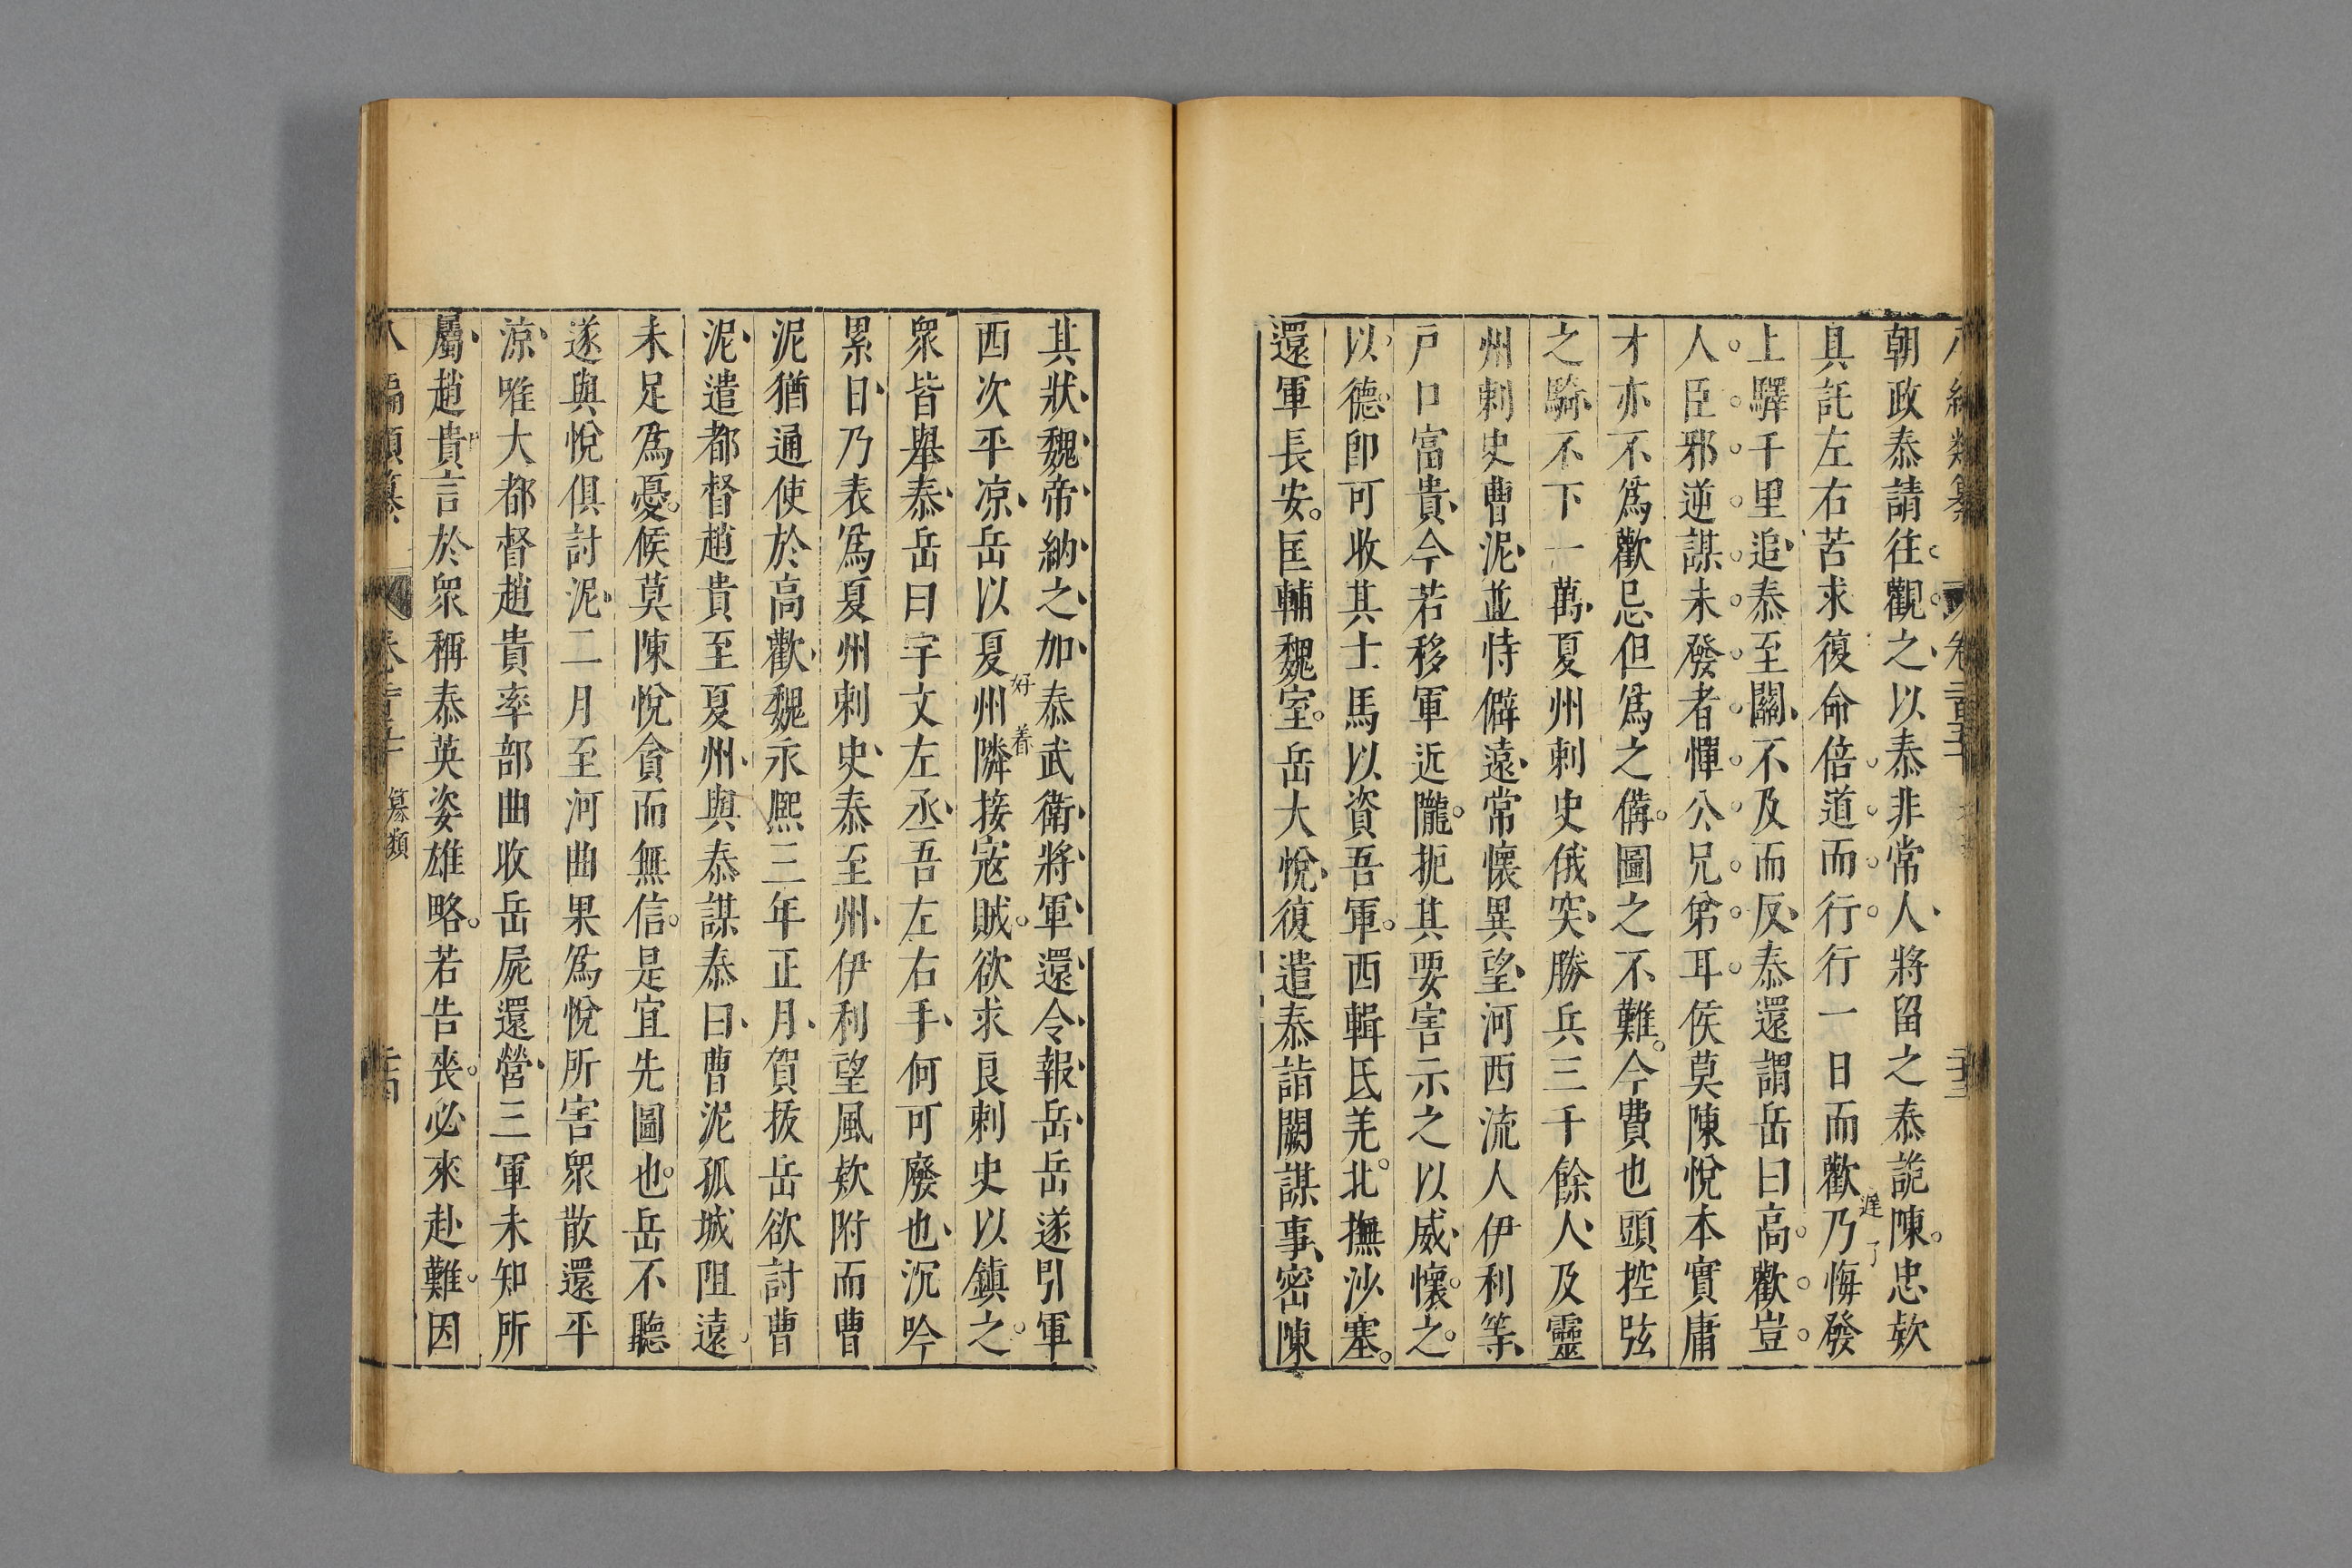 朝政泰請往觀之以泰非常人將留之泰詭陳忠欵
具託左右苦求復命倍道而行行一日而歡乃悔發
遲了
上驛千里追泰至關不及而反泰還謂岳曰高歡豈
人臣邪逆謀未發者憚公兄弟耳侯莫陳悅本實庸
才亦不爲歡忌但爲之備圖之不難今費也頭控弦
之騎不下一萬夏州刺史俄突勝兵三千餘人及靈
州刺史曹泥並恃僻遠常懷異望河西流人伊利等
戸口富貴今若移軍近隴扼其要害示之以威懷之
以德即可收其士馬以資吾軍西輯氐羌北撫沙塞
還軍長安匡輔魏室岳大悅復遣泰詣闕謀事密陳
其狀魏帝納之加泰武衛將軍還令報岳岳遂引軍
西次平凉岳以夏州隣接寇賊欲求良刺史以鎮之
好着
衆皆舉泰岳曰宇文左丞吾左右手何可廢也沉吟
累日乃表爲夏州刺史泰至州伊利望風欵附而曹
泥猶通使於高歡魏永熙三年正月賀拔岳欲討曹
泥遣都督趙貴至夏州與泰謀泰曰曹泥孤城阻遠
未足爲憂侯莫陳悅貪而無信是宜先圖也岳不聽
遂與悅俱討泥二月至河曲果爲悅所害衆散還平
涼唯大都督趙貴率部曲收岳屍還營三軍未知所
屬趙貴言於衆稱泰英姿雄略若告喪必來赴難因
八編類纂
纂類